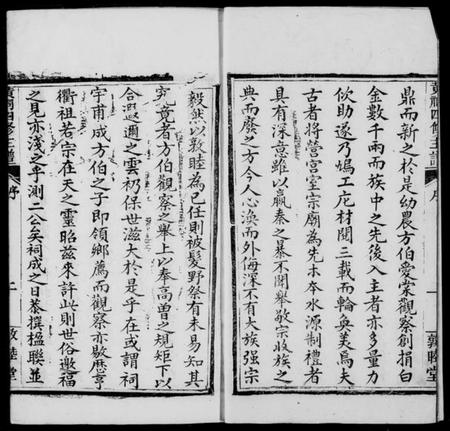 鼎而新之於是幼農方伯愛棠觀察創捐白
金數千兩而族中之先後入主者亦多量力
佽助遂乃鳩工庀材閱三載而輪奐美焉夫
古者將營宮室宗廟為先木本水源制禮者
具有深意雖以嬴秦之暴不聞舉敬宗收族之
典而廢之方今人心渙而外侮深不有大族強宗
敦睦堂
黃祠四修主譜
序
毅然以敦睦為己任則被髮野祭有未易知其
究竟者方伯觀察之舉上以奉高曾之規矩下以
合遐邇之雲礽保世滋大於是乎在或謂祠
宇甫成方伯之子即領鄉薦而觀察亦歌應亨
衢祖若宗在天之靈昭茲來許此則世俗邀福
之見亦淺之乎測二公矣祠成之日恭撰楹聯並
黃祠四修主譜
序
二
敦睦堂